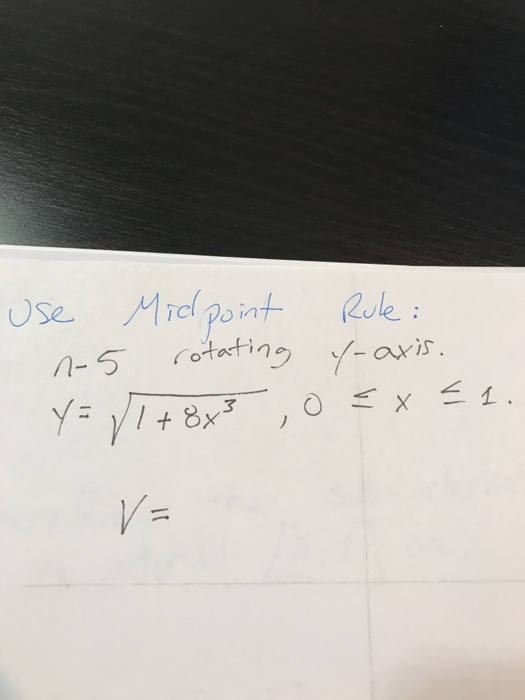 Use Midpoint Rule:
n-5 rotating y-axis.
y= √1+8x³ , 0 ≤ x ≤ 1.
V=